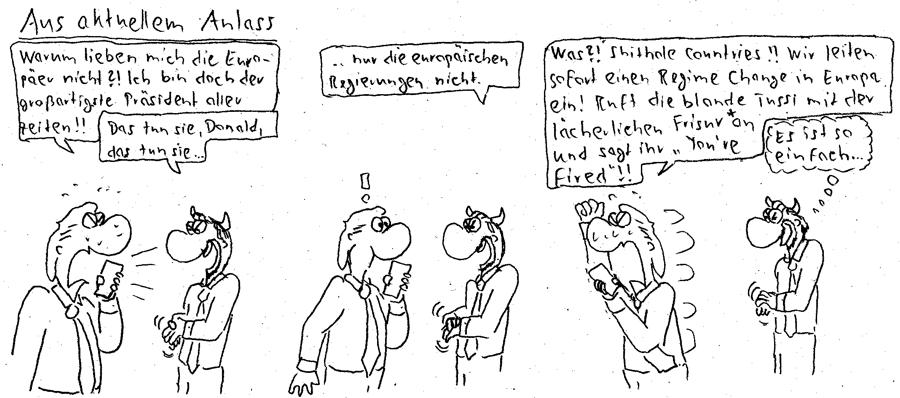 Aus aktuellem Anlass
Warum lieben mich die Euro-
päer nicht?! Ich bin doch der
großartigste Präsident aller
Zeiten!!
Das tun sie, Donald,
das tun sie...
.. nur die europäischen
Regierungen nicht.
!
Was?! Shithole Countries!! Wir leiten
sofort einen Regime Change in Europa
ein! Ruft die blonde Tussi mit der
lächerlichen Frisur* an
und sagt ihr „You're
Fired"!!
Es ist so
einfach...